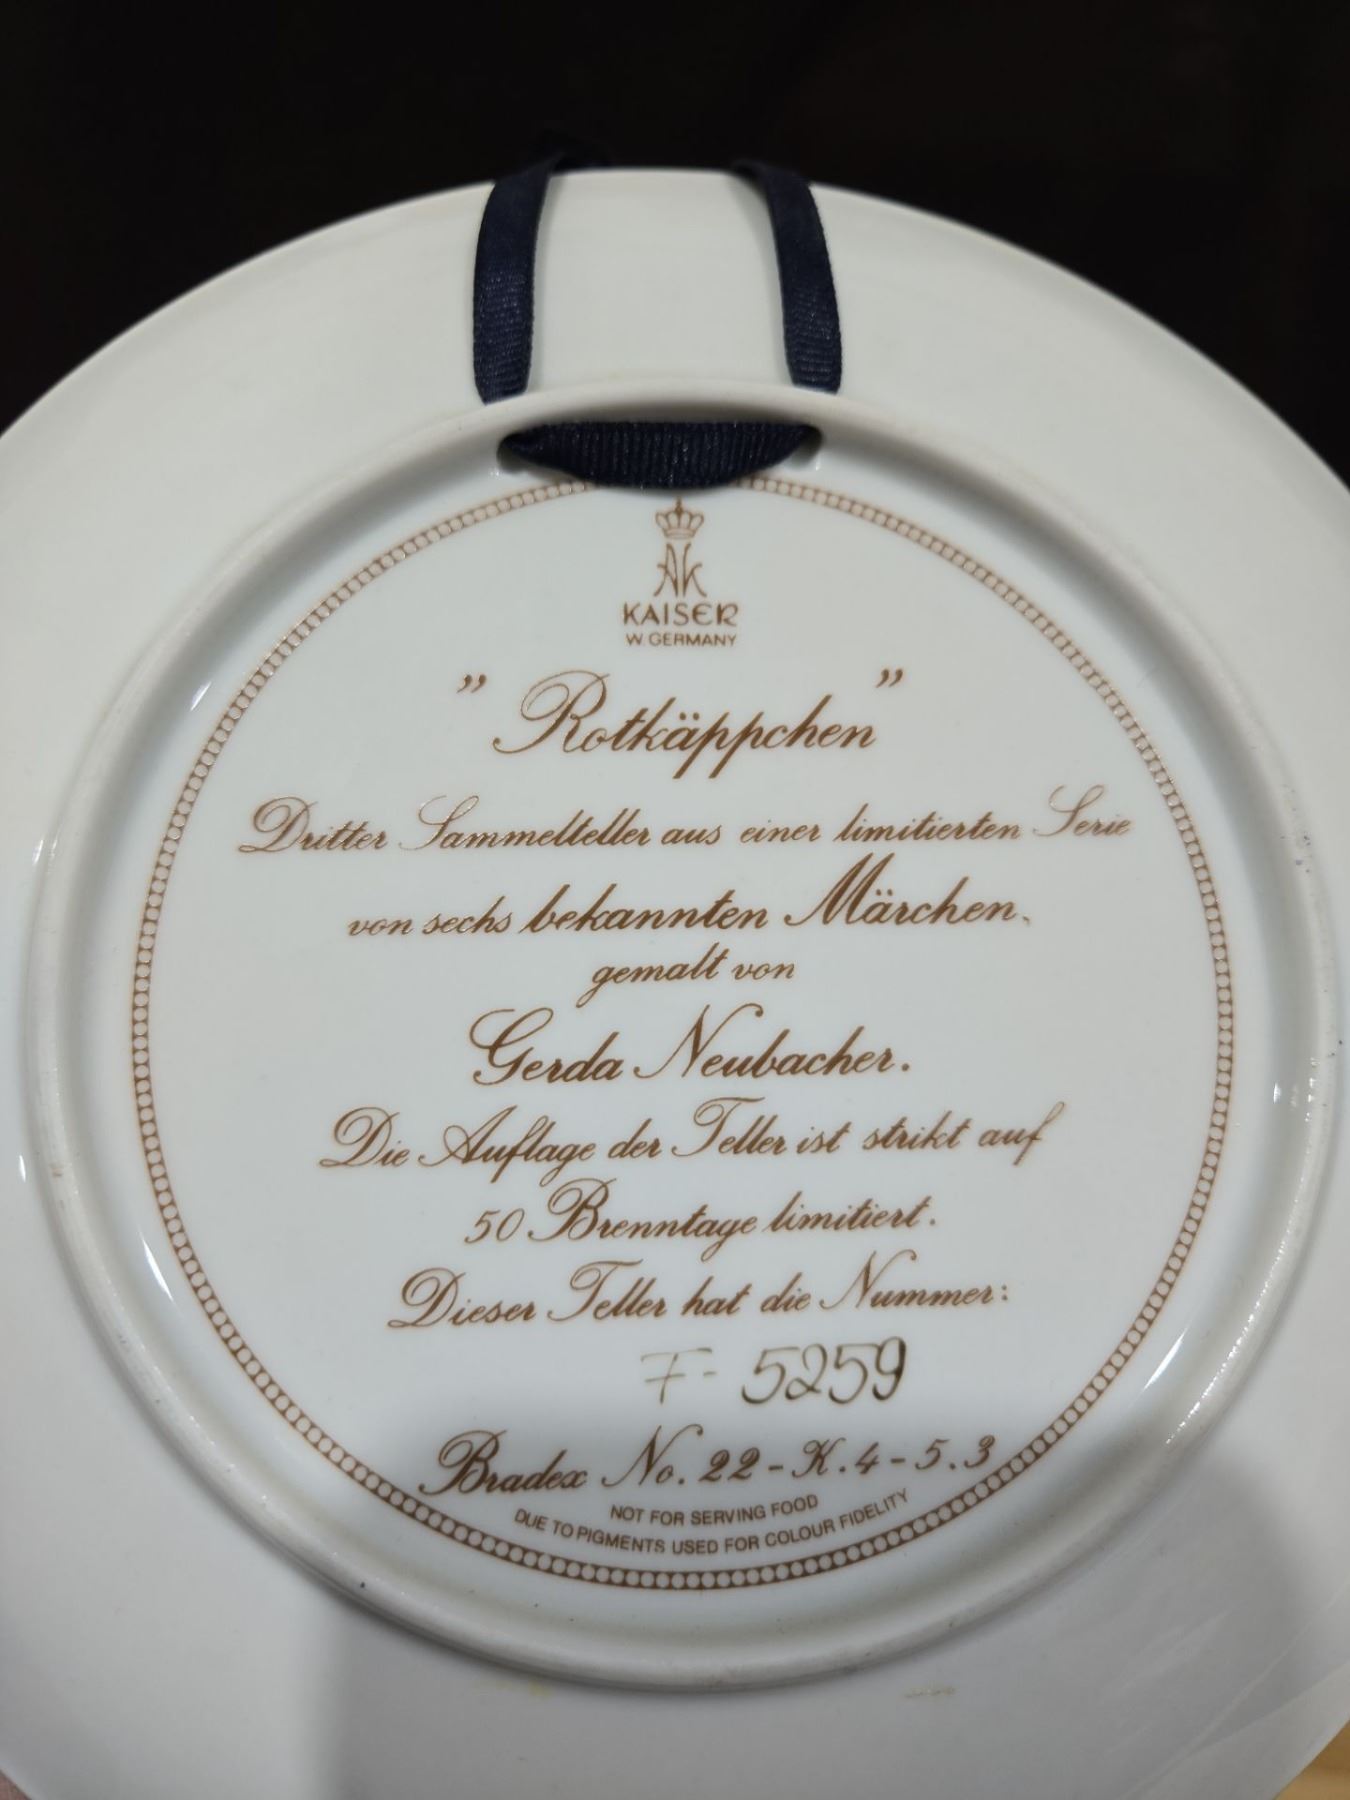 AK
KAISER
W. GERMANY
” Rotkäppchen ”
Dritter Sammelteller aus einer limitierten Serie
von sechs bekannten Märchen,
gemalt von
Gerda Neubacher.
Die Auflage der Teller ist strikt auf
50 Brenntage limitiert.
Dieser Teller hat die Nummer:
F- 5259
Bradex No. 22-K.4-5.3
NOT FOR SERVING FOOD
DUE TO PIGMENTS USED FOR COLOUR FIDELITY